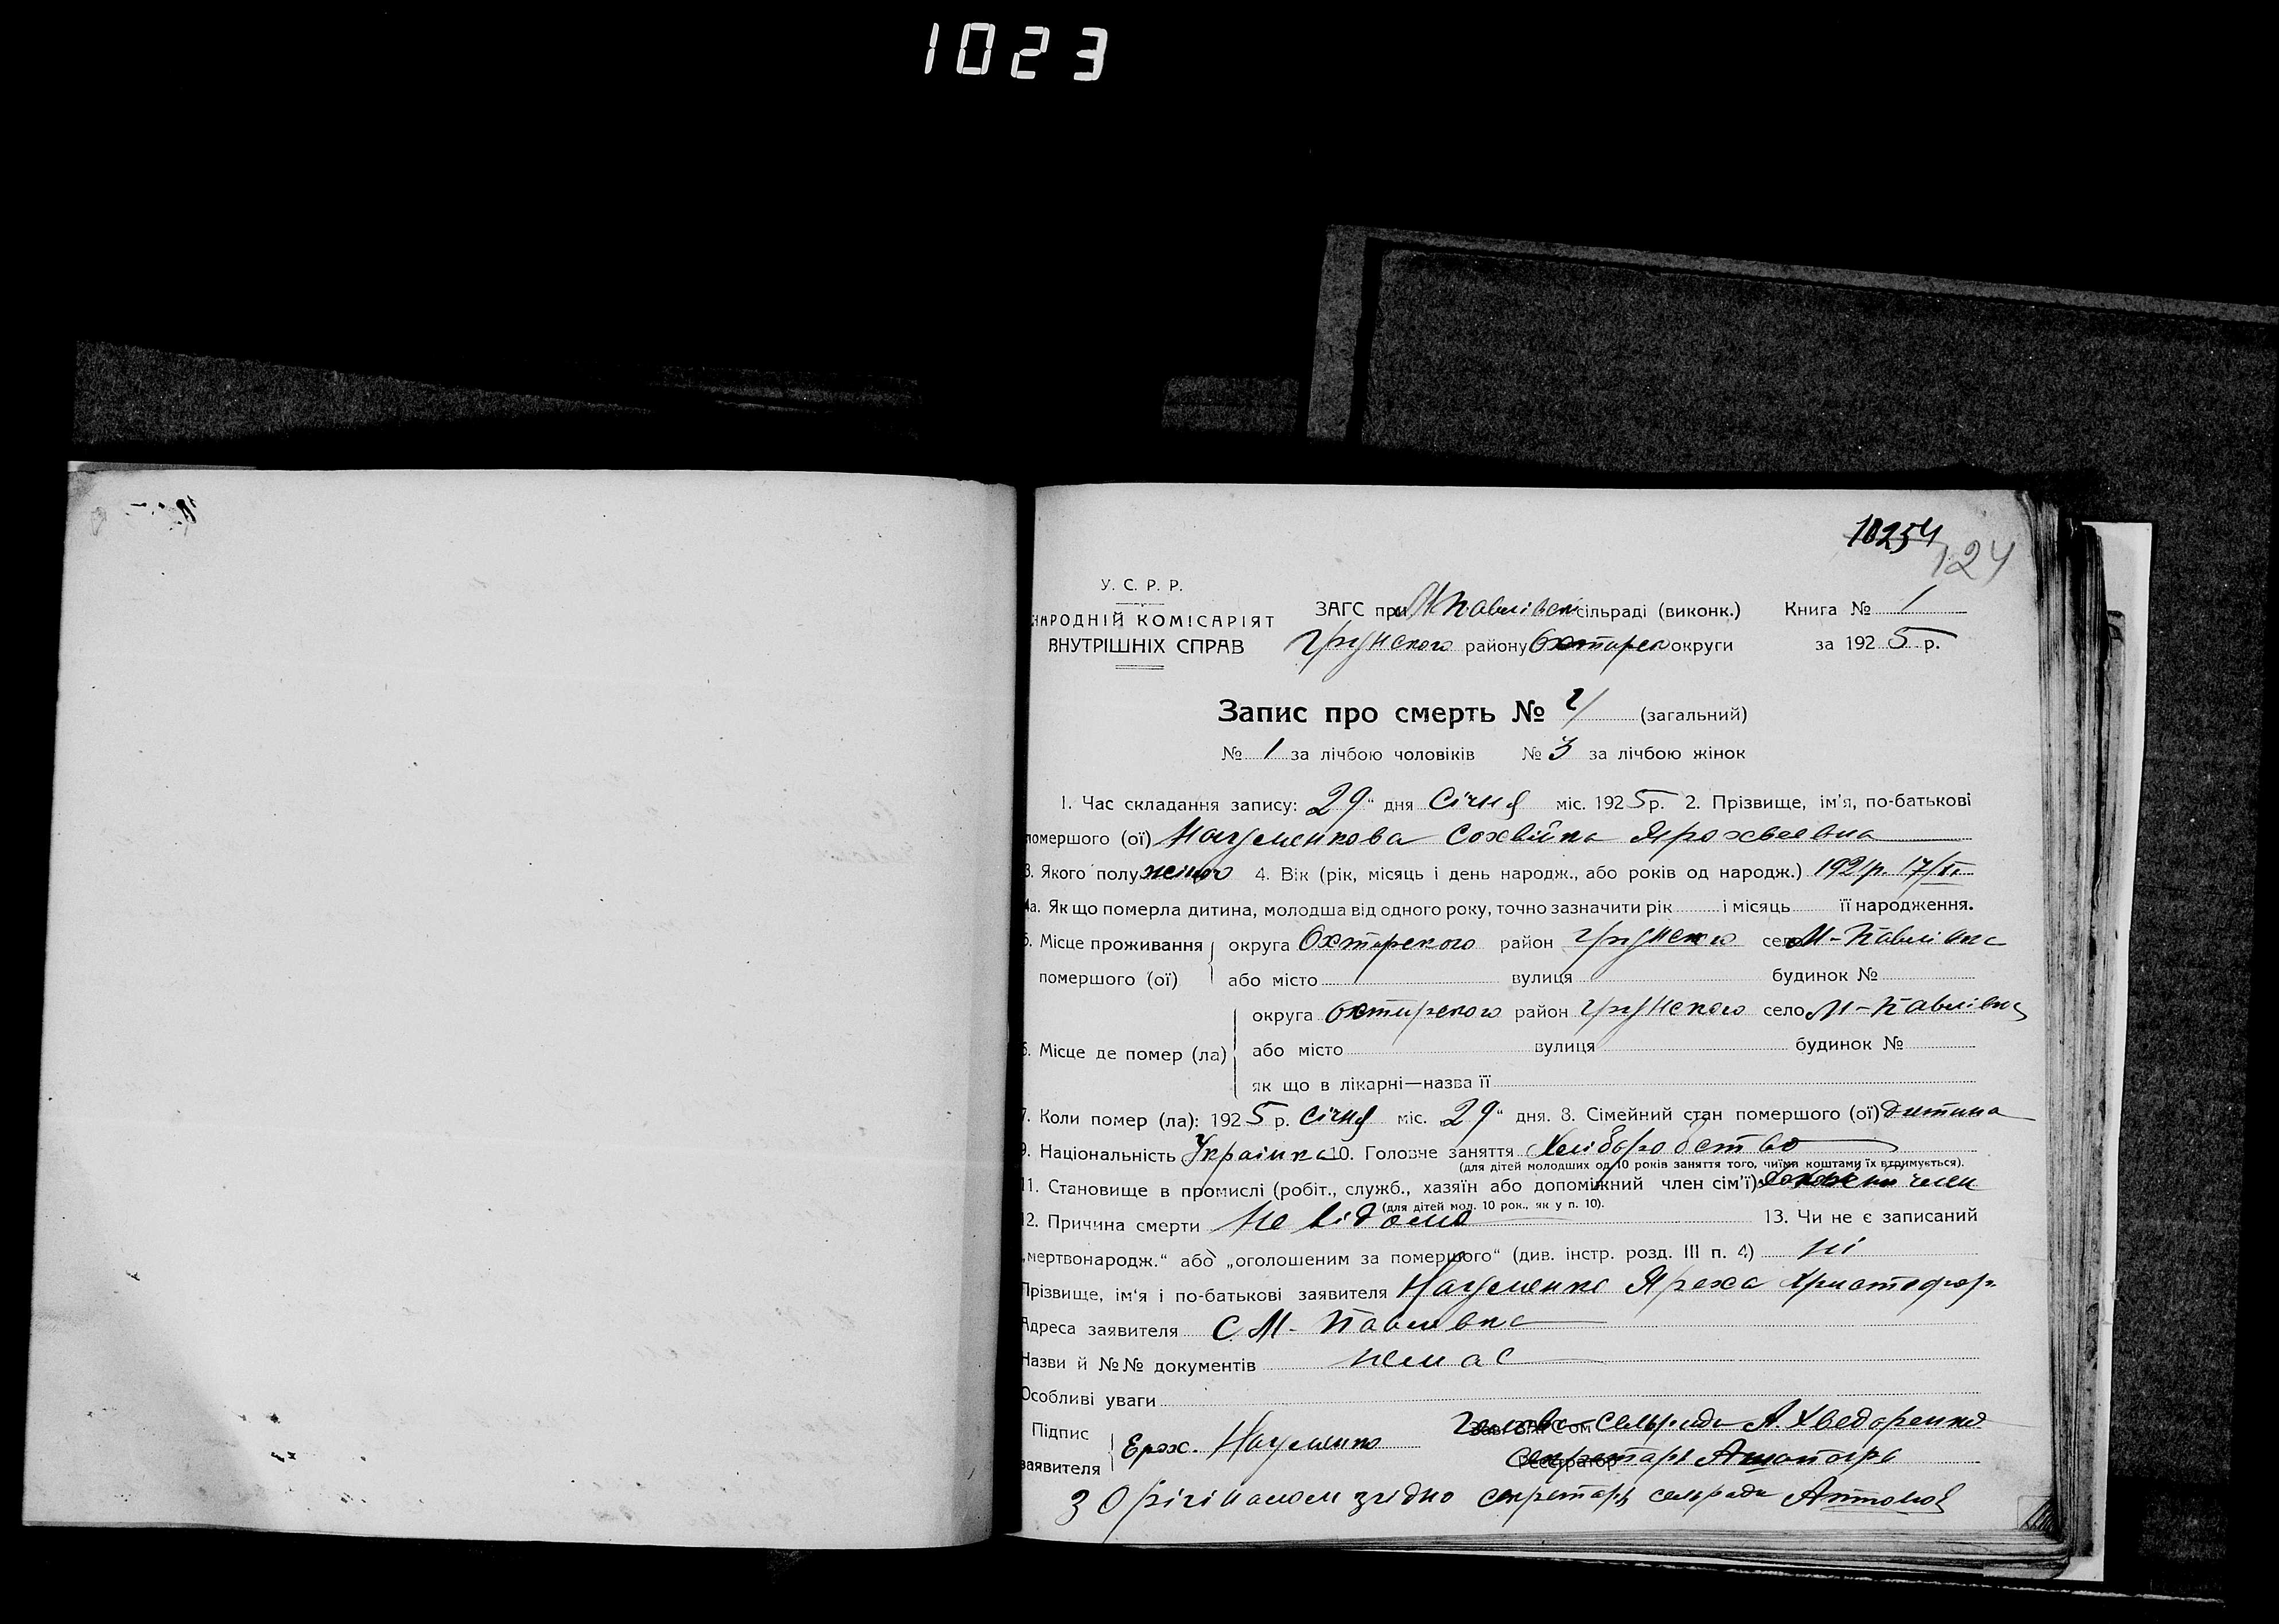 1023
10254
124
У. С. Р. Р.
НАРОДНІЙ КОМІСАРІЯТ
ВНУТРІШНІХ СПРАВ
ЗАГС при М Павлівск сільраді (виконк.) Книга № 1
Грунского району Охтирск округи за 1925 р.
Запис про смерть № 4 (загальний)
№ 1 за лічбою чоловіків № 3 за лічбою жінок
1. Час складання запису: 29" дня Січня міс. 1925 р. 2. Прізвище, ім'я, по-батькові
помершого (ої) Науменкова Сохвійка Ярохвеевна
3. Якого полу жіного 4. Вік (рік, місяць і день народж., або років од народж.) 1921р. 17/
4а. Як що померла дитина, молодша від одного року, точно зазначити рік і місяць її народження.
5. Місце проживання округа Охтирского район Грунского село М-Павлівка
помершого (ої) або місто вулиця будинок №
округа Охтирского район Грунского село М-Павлівка
6. Місце де помер (ла) або місто вулиця будинок №
як що в лікарні—назва її
7. Коли помер (ла): 1925 р. Січня міс. 29" дня. 8. Сімейний стан помершого (ої) дитина
9. Національність Українка 10. Головне заняття Хліборобство
(для дітей молодших од 10 років заняття того, чиїми коштами їх втримується).
11. Становище в промислі (робіт., служб., хазяїн або допоміжний член сім'ї) член
(для дітей мол. 10 рок., як у п. 10).
12. Причина смерти Не відома 13. Чи не є записаний
„мертвонародж." або „оголошеним за помершого" (див. інстр. розд. III п. 4) ні
Прізвище, ім'я і по-батькові заявителя Науменко Яроха Христофор.
Адреса заявителя С. М-Павлівка
Назви й №№ документів немае
Особливі уваги
Підпис
заявителя Ерох. Науменко
Зав. ЗАГСом Голова сельради А. Хведоренко
Реєстратор Секретарь
З Орігіналом згідно секретарь сельради